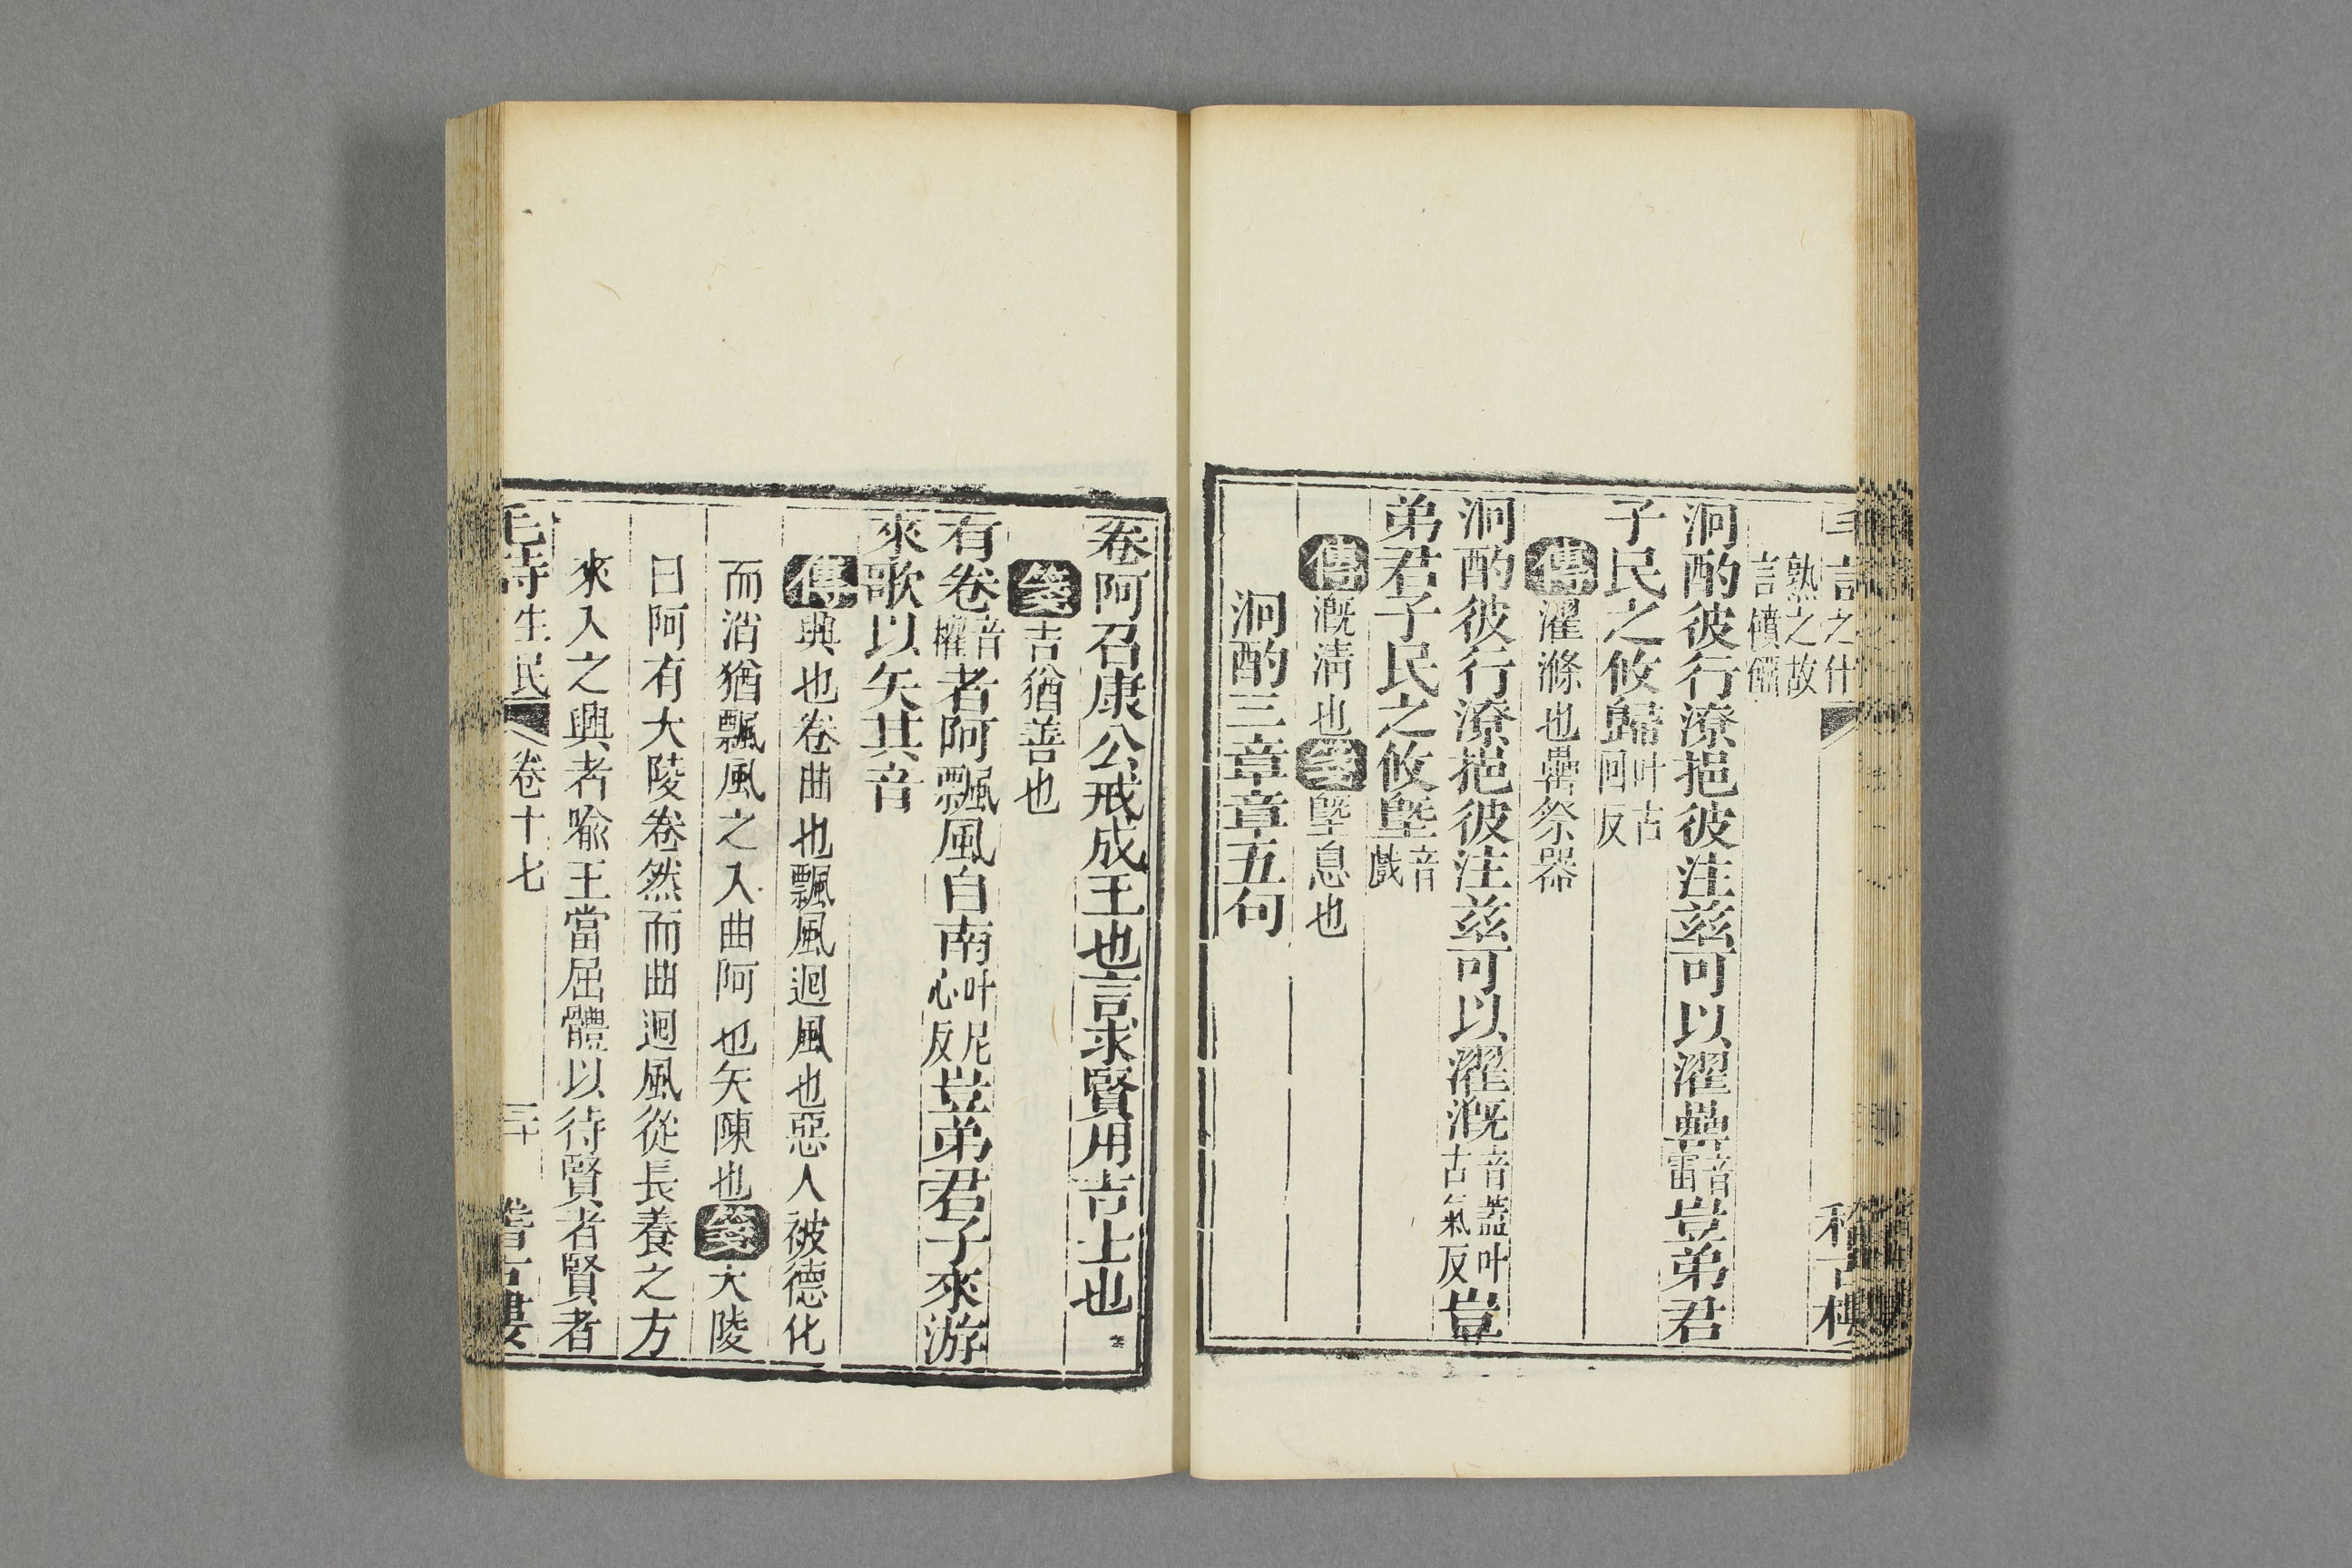 言之什
熟之故
言饙餾
泂酌彼行潦挹彼注茲可以濯罍音雷豈弟君
子民之攸歸叶古回反
傳濯滌也罍祭器
泂酌彼行潦挹彼注茲可以濯溉音蓋叶古氣反豈
弟君子民之攸塈音戲
傳溉清也箋塈息也
泂酌三章章五句
卷阿召康公戒成王也言求賢用吉士也
箋吉猶善也
有卷音權者阿飄風自南叶尼心反豈弟君子來游
來歌以矢其音
傳興也卷曲也飄風迴風也惡人被德化
而消猶飄風之入曲阿也矢陳也箋大陵
曰阿有大陵卷然而曲迴風從長養之方
來入之興者喻王當屈體以待賢者賢者
毛詩生民 卷十七 三十